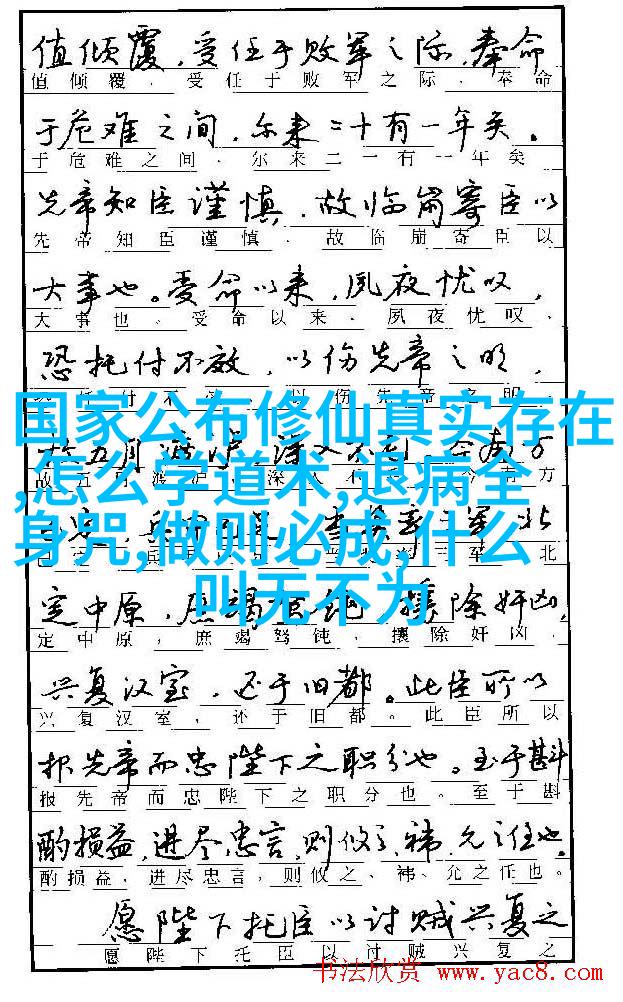 值倾覆，受任于败军之际，奉命
值倾覆，受任于败军之际，奉命
于危难之间，尔来二十有一年矣。
于危难之间，尔来二一有一年矣
先帝知臣谨慎，故临崩寄臣以
先帝知臣谨慎，故临崩寄臣以
大事也。受命以来，夙夜忧叹，
大事也。受命以来，夙夜忧叹，
恐托付不效，以伤先帝之明，
付不 以伤先帝之明
国家公布修仙真实存在
故五月渡泸 深入不 今南方
,怎么学道术,退病全
身咒,做则必成,什么
北
叫无不为
定中原，庶竭驽钝，攘除奸凶，
定中原，庶竭驽钝，攘除奸凶，
兴复汉室，还于旧都。此臣所以
兴复汉室，还于旧都。此臣所以
报先帝而忠陛下之职分也。至于斟
报先帝而忠陛下之职分也。至于斟
酌损益，进尽忠言，则攸之、祎、允之任也。
酌损益，进尽忠言，则攸之、祎、允之任也。
愿陛下托臣以讨贼兴复之
愿陛下托臣以讨贼兴复之
书法欣赏 www.yac8.com